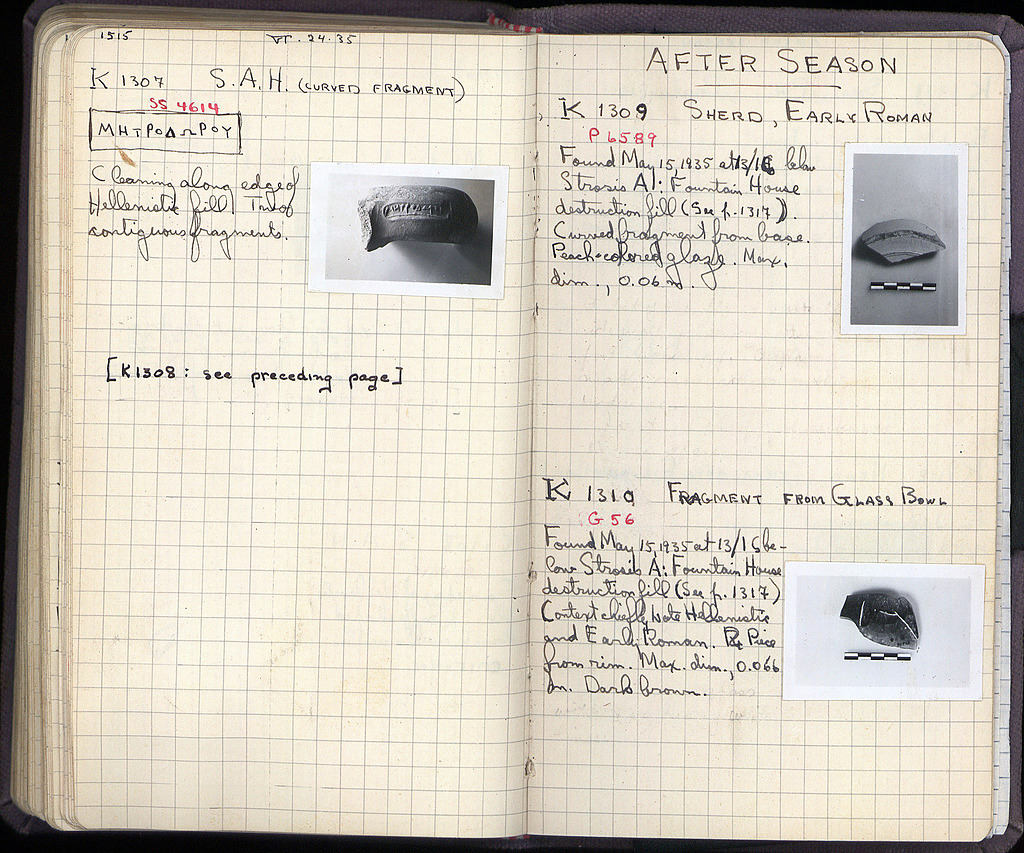 1515 VI. 24. 35
K 1307 S.A.H. (CURVED FRAGMENT)
SS 4614
ΜΗΤΡΟΔΩΡΟΥ
Cleaning along edge of
Hellenistic fill. Two
contiguous fragments.
[K1308: see preceding page]
AFTER SEASON
K 1309 SHERD, EARLY ROMAN
P 6589
Found May 15, 1935 at 13/ΙϚ below
Strosis A1: Fountain House
destruction fill (See p. 1317).
Curved fragment from base.
Peach-colored glaze. Max.
dim., 0.06 m.
K 1310 FRAGMENT FROM GLASS BOWL
G 56
Found May 15, 1935 at 13/ΙϚ be-
low Strosis A: Fountain House
destruction fill (See p. 1317)
Context chiefly late Hellenistic
and Early Roman. Piece
from rim. Max. dim., 0.066
m. Dark brown.